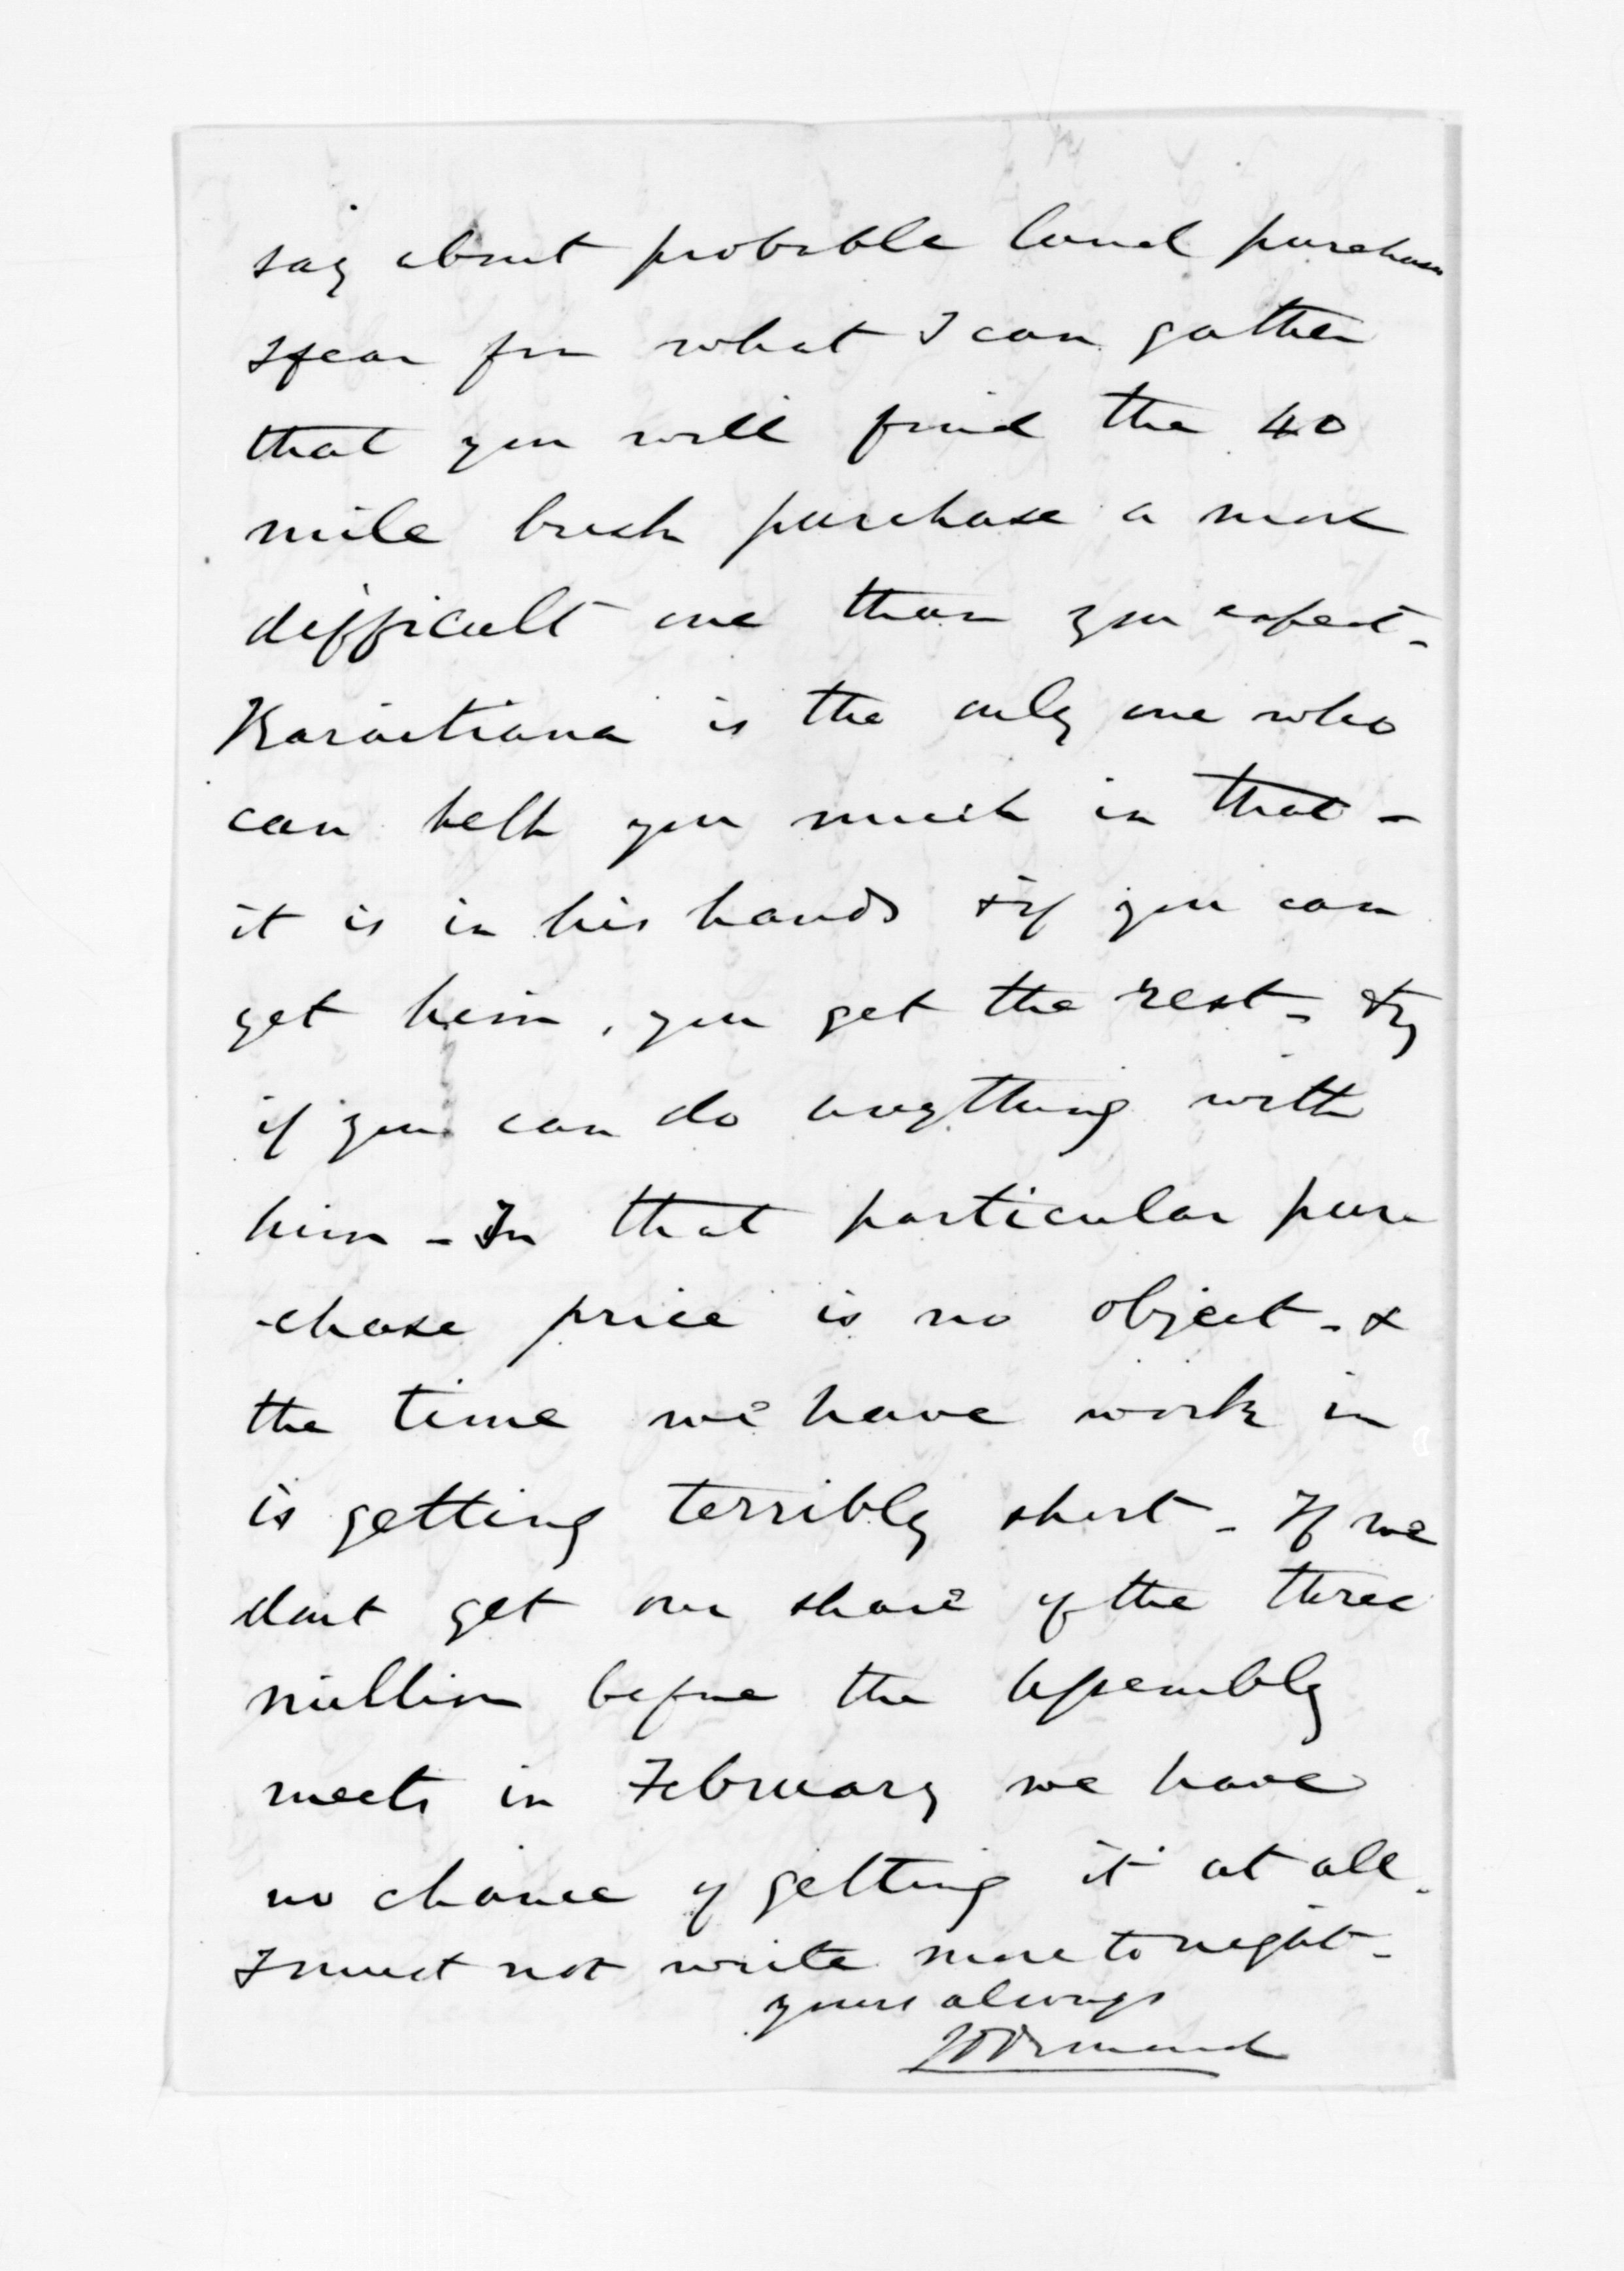 say about probable land purchases
I fear from what I can gather
that you will find the 40
mile bush purchase a more
difficult one than you expect -
Karaitiana is the only one who
can help you much in that -
it is in his hands & if you can
get him, you get the rest - try
if you can do anything with
him - In that particular pur
-chase price is no object - &
the time we have work in
is getting terribly short - If we
dont get our share of the three
million before the Assembly
meets in February we have
no chance of getting it at all.
I must not write more to night -
yours always
JD Ormond